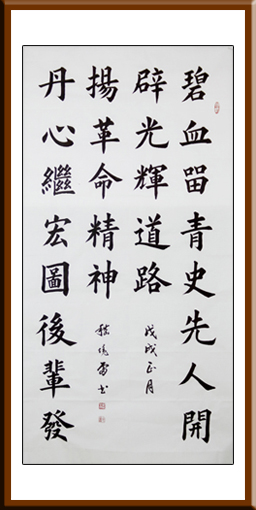 碧血留青史先人開
辟光輝道路
戊戌正月
丹心繼宏圖後輩發
揚革命精神
书